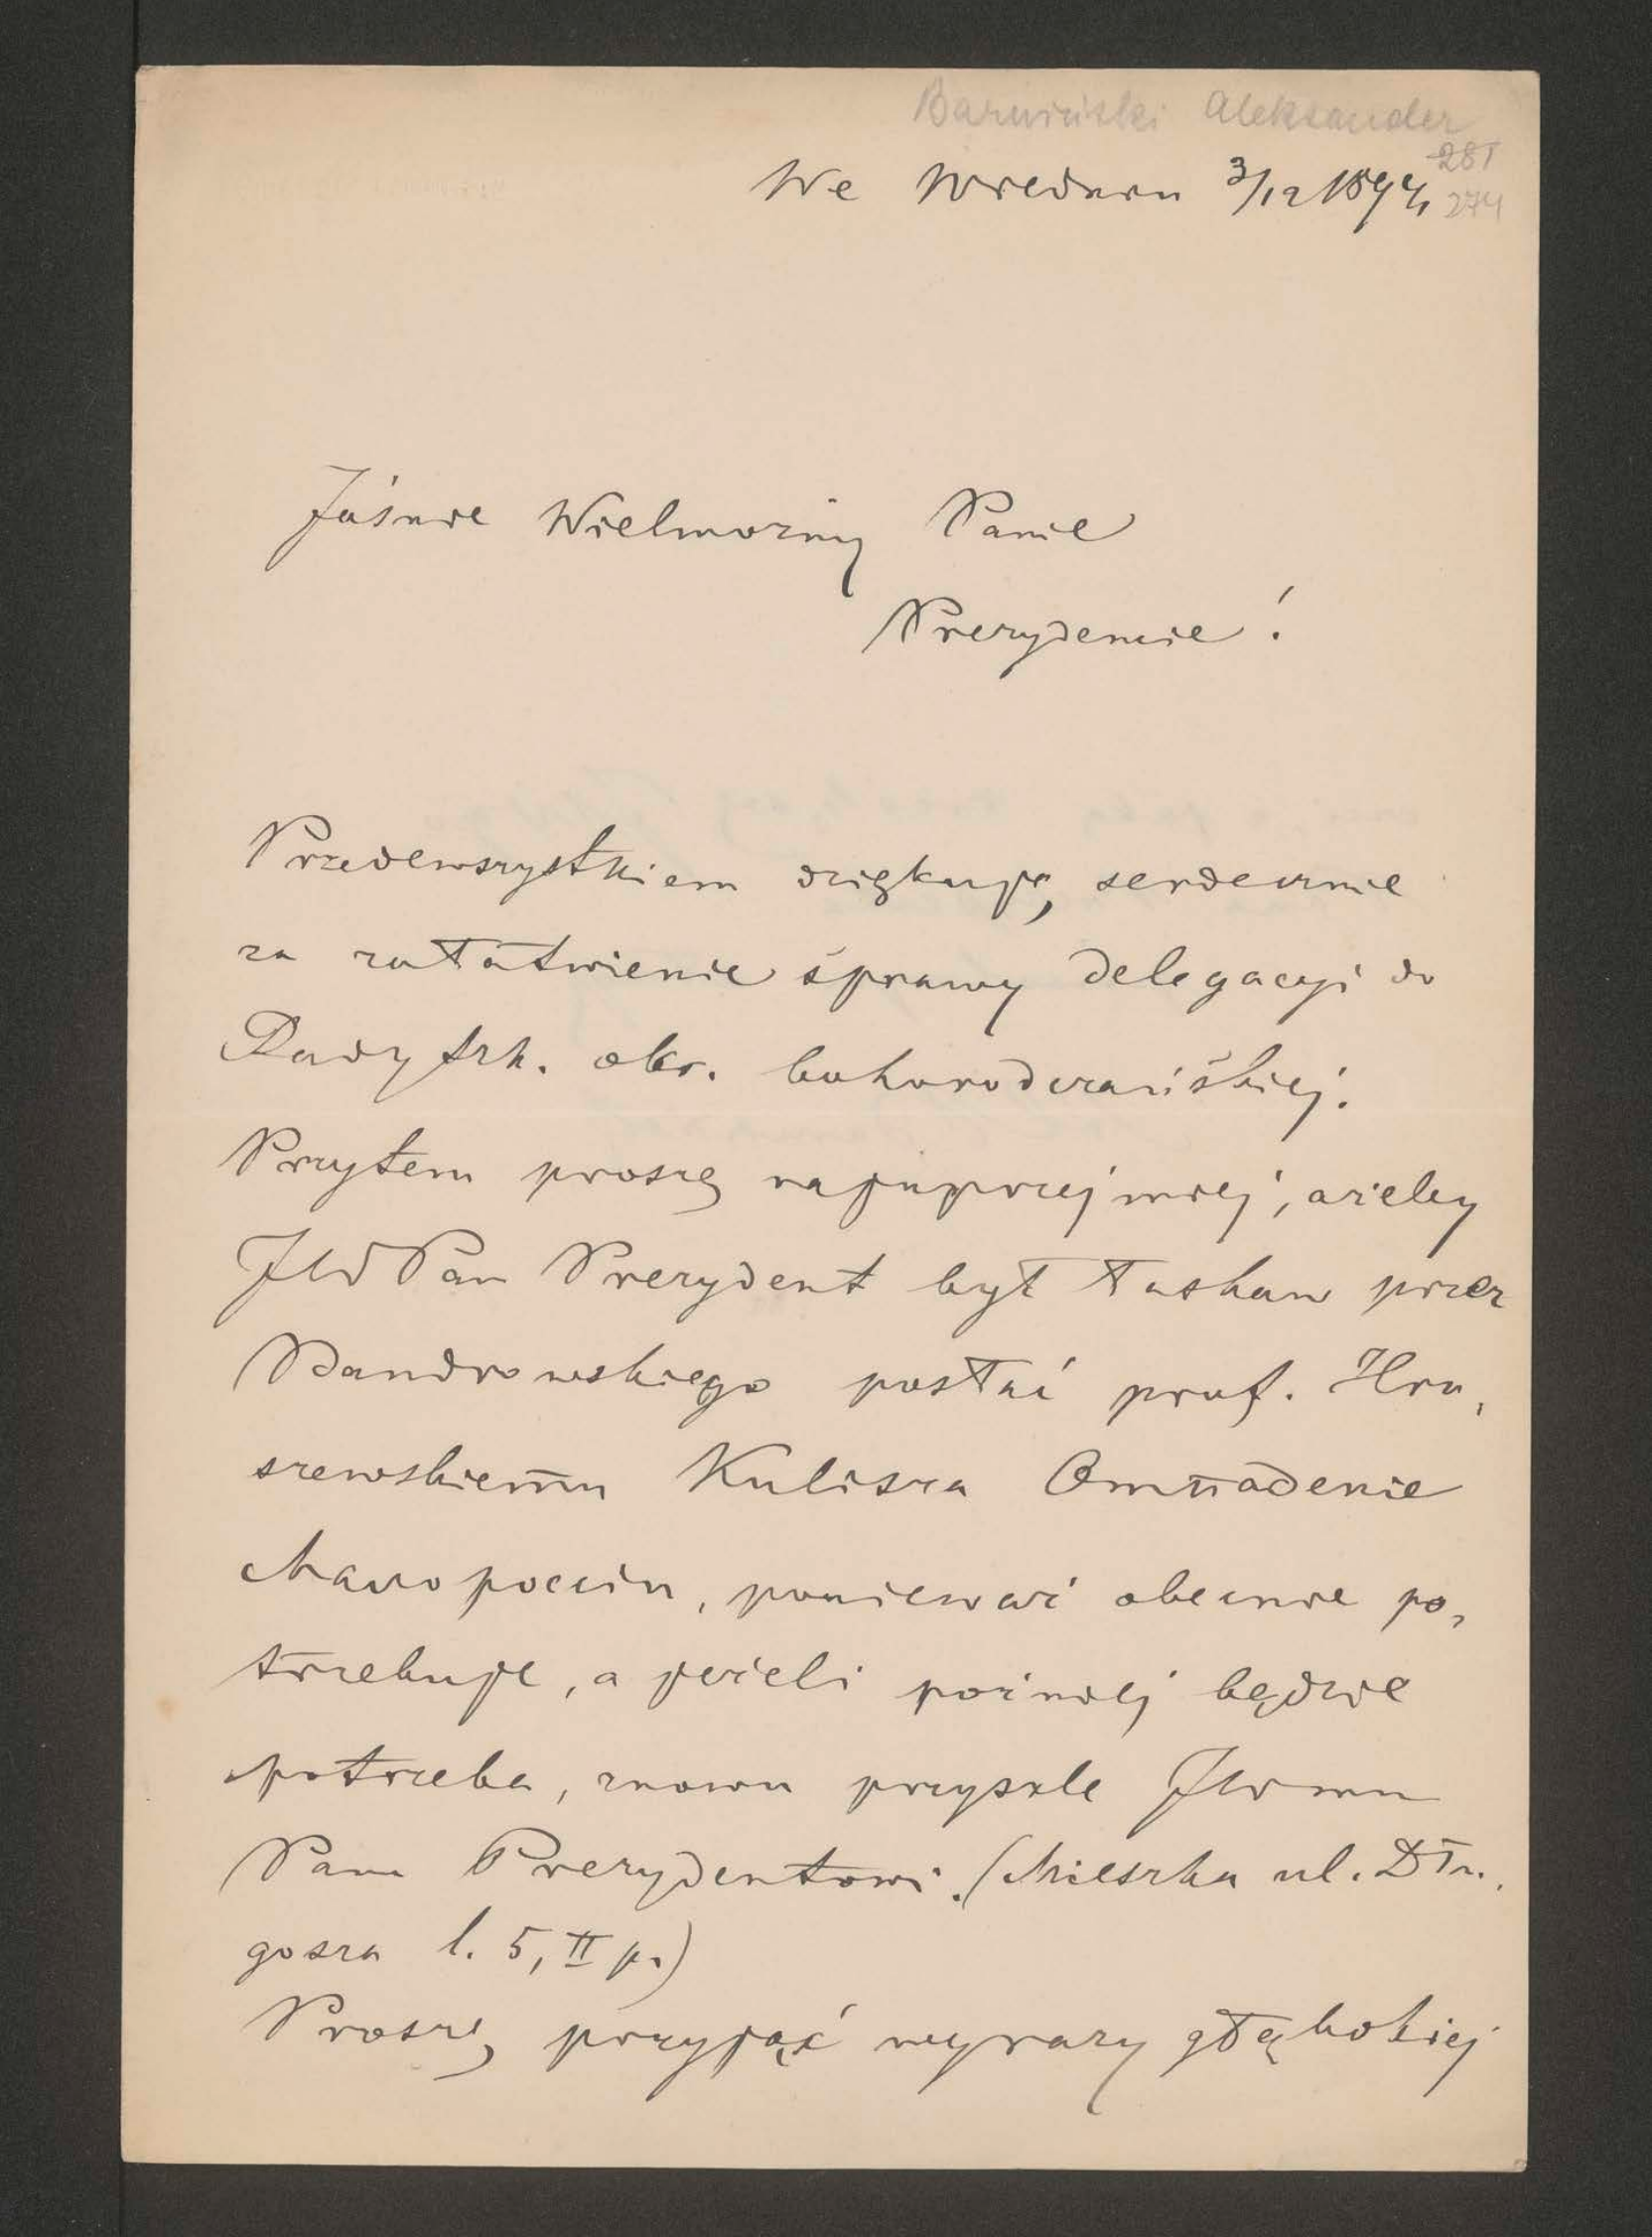 Barwiński Aleksander
281
We Wiedniu 3/12 1894,
274
Jaśnie Wielmożny Panie
Prezydencie!
Przedewszystkiem dziękuję serdecznie
za załatwienie sprawy delegacyi do
Rady szk. okr. bohorodczańskiej.
Przytem proszę najuprzejmiej, ażeby
JWPan Prezydent był łaskaw przez
Bandrowskiego posłać prof. Hru,
szewskiemu Kulisza Отпадение
Малороссіи, ponieważ obecnie po,
trzebuje, a jeżeli poźniej będzie
potrzeba, znowu przyszle JWmu
Panu Prezydentowi. (Mieszka ul. Dłu,
gosza l. 5, II p.)
Proszę przyjąć wyrazy głębokiej